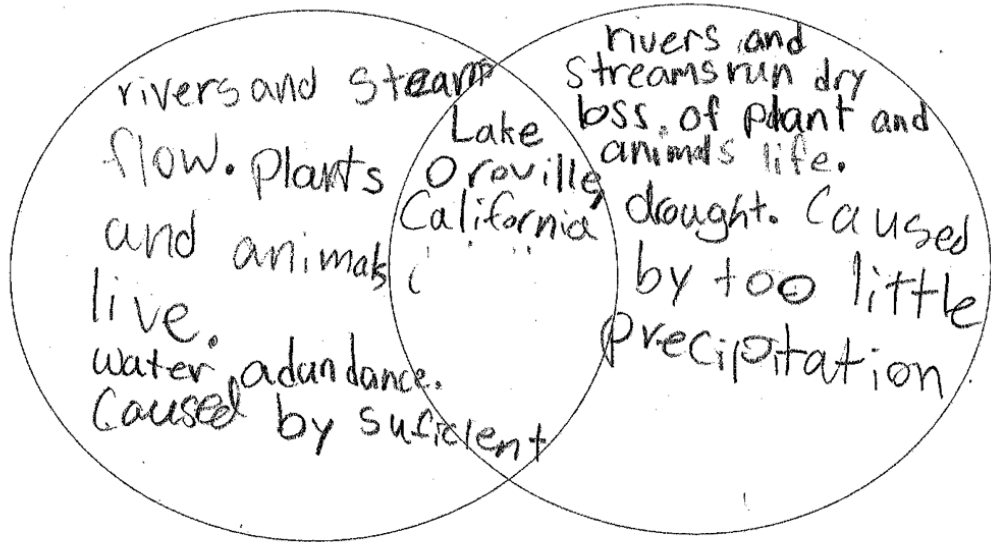 rivers and stream
flow. plants
and animals
live.
water adundance.
Caused by suficient
Lake
Oroville,
California
rivers and
streams run dry
loss. of plant and
animals life.
drought. Caused
by too little
precipitation